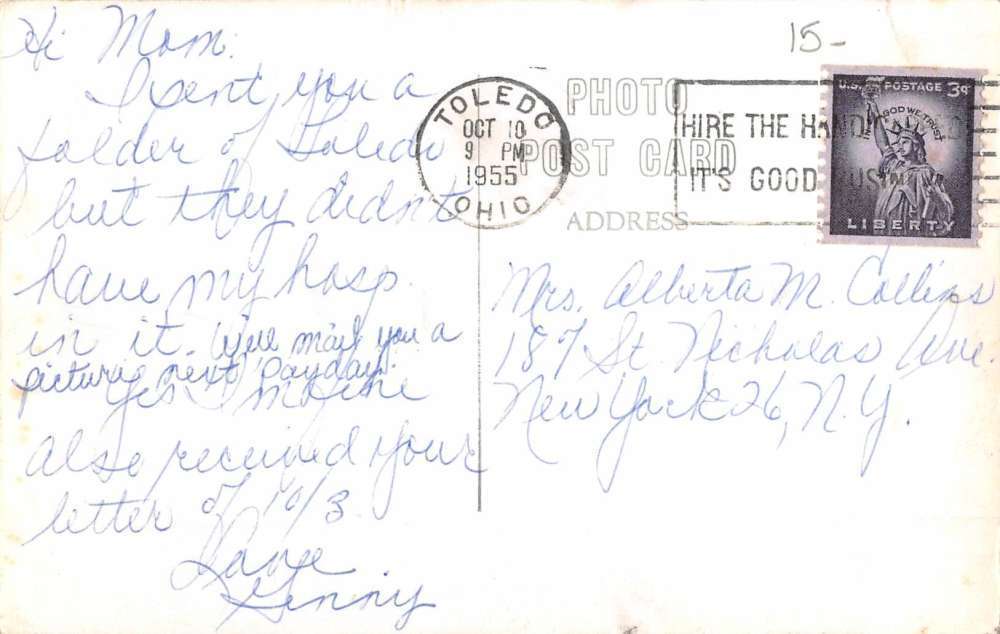 15-
Hi Mom.
I sent you a
folder of Toledo
but they didn't
have my hosp.
in it. Will mail you a
picture next Payday.
Yes I
also received your
letter of 10/3.
Love
Ginny
TOLEDO
OCT 10
9 PM
1955
OHIO
PHOTO
POST CARD
ADDRESS
HIRE THE
IT'S GOOD
U.S. POSTAGE 3¢
IN GOD WE TRUST
LIBERTY
Mrs. Alberta M. Collins
187 St Nicholas Ave.
New York 26, N.Y.